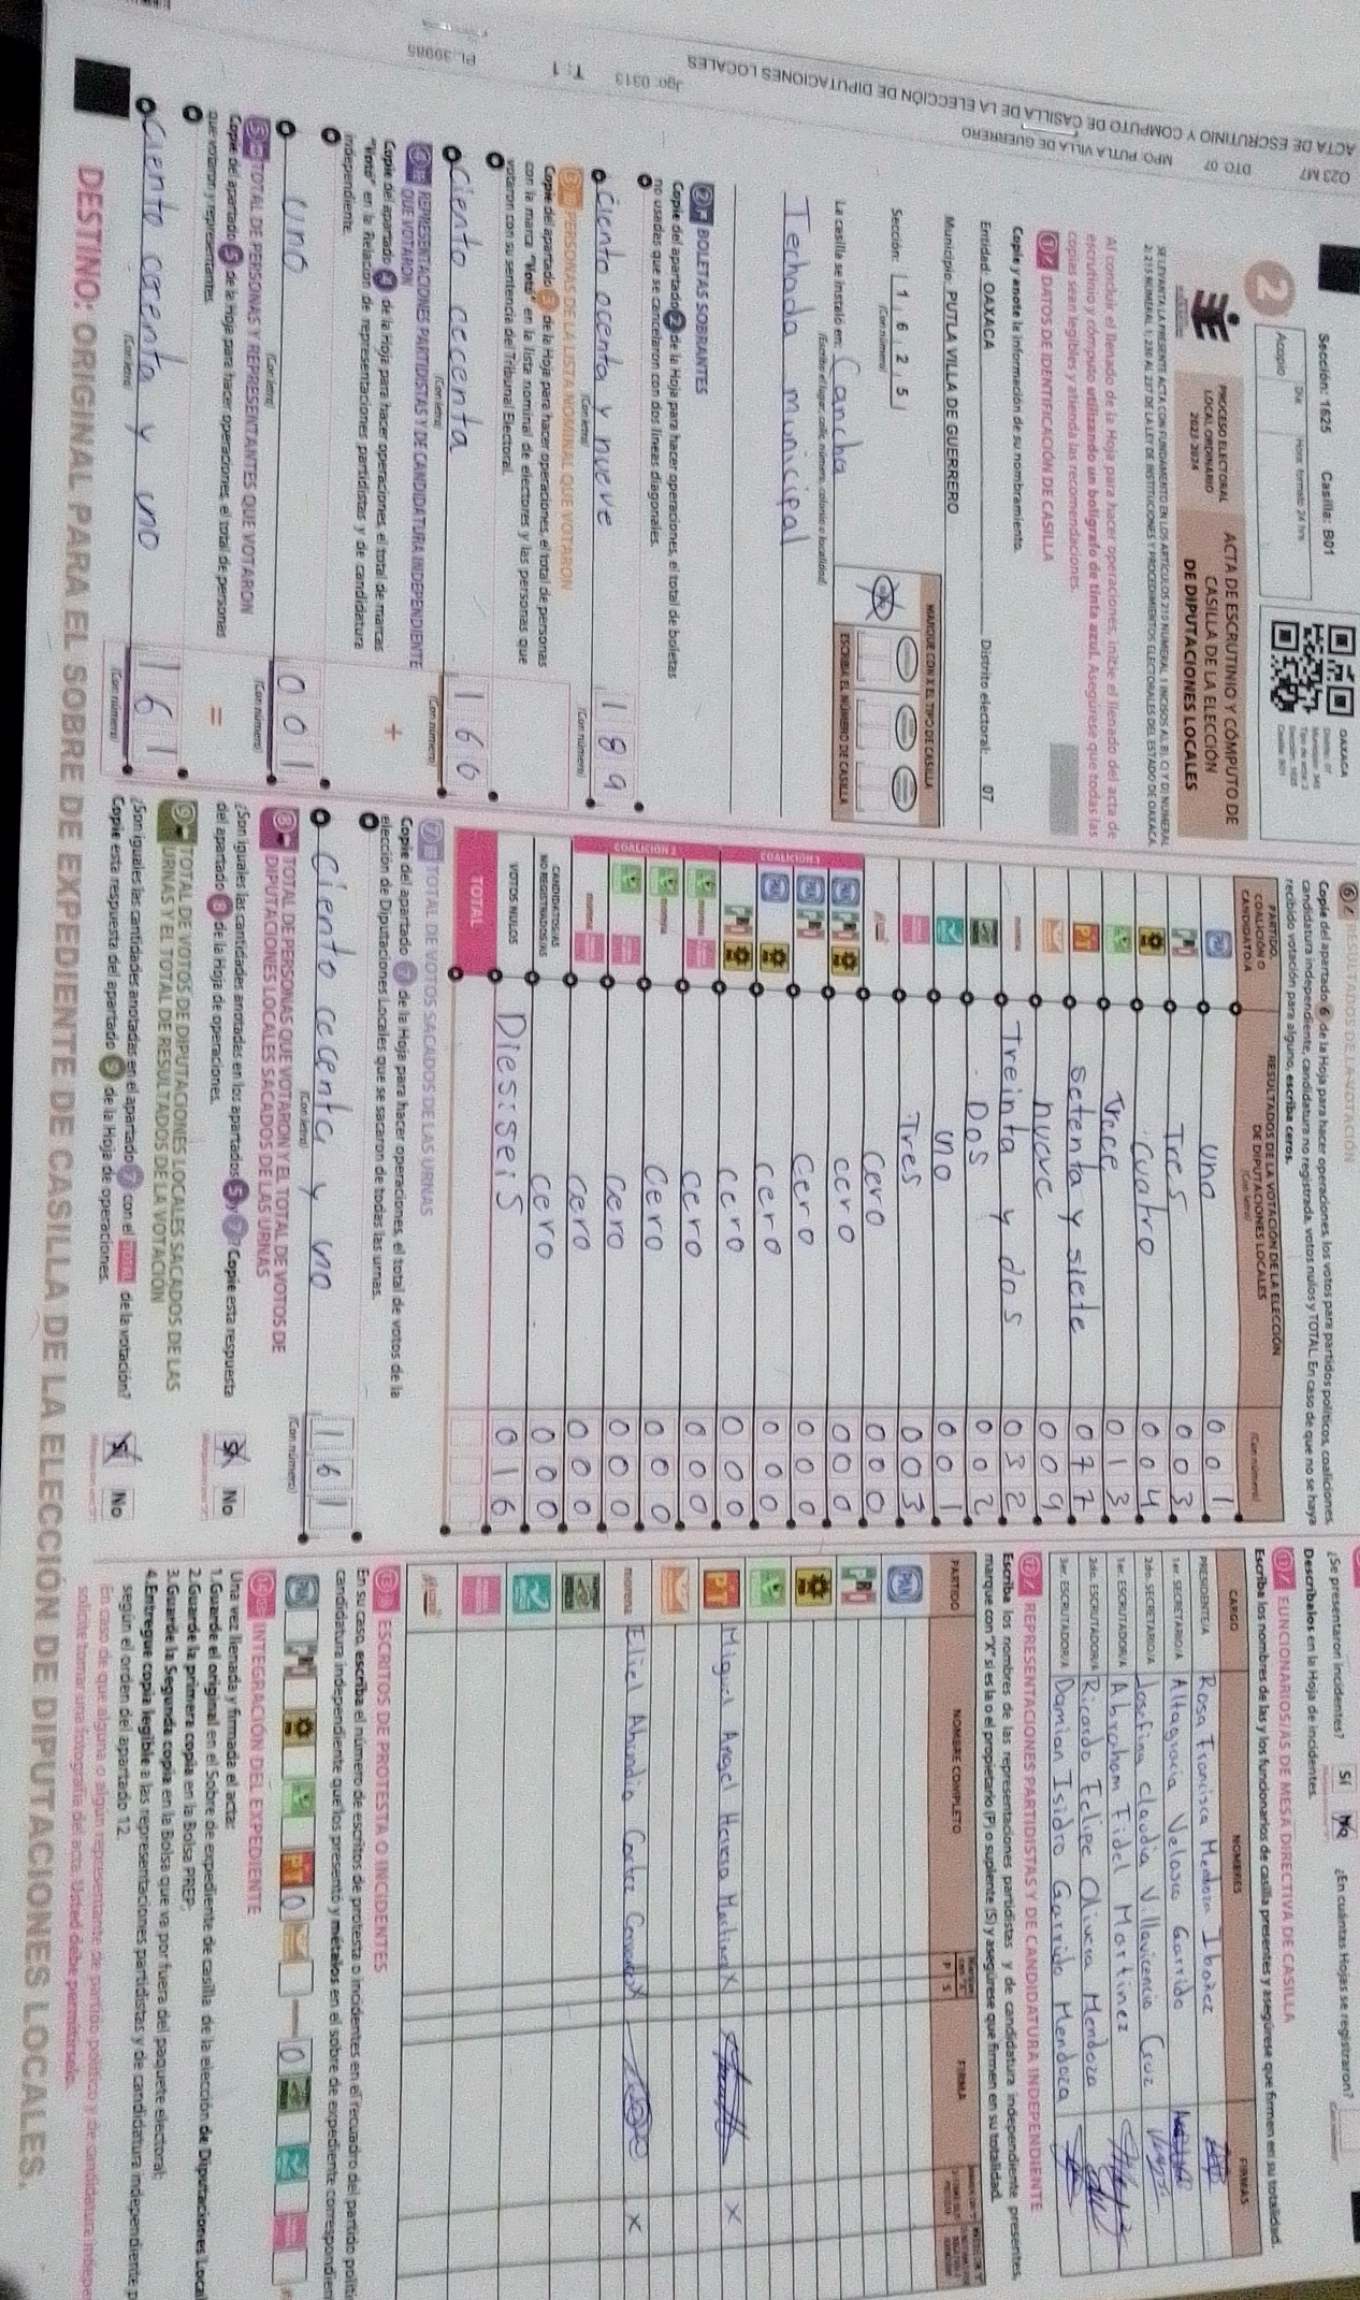 ACTA DE ESCRUTINIO Y COMPUTO DE CASILLA DE LA ELECCIÓN DE DIPUTACIONES LOCALES
023 M7 DTO 07 MPO: PUTLA VILLA DE GUERRERO
Jgo: 0313 T: 1 PL: 39985
Sección: 1625 Casilla: B01
OAXACA
2
Día Hora: formato 24 hrs
Acopio
PROCESO ELECTORAL
LOCAL ORDINARIO
2023-2024
ACTA DE ESCRUTINIO Y CÓMPUTO DE
CASILLA DE LA ELECCIÓN
DE DIPUTACIONES LOCALES
Al concluir el llenado de la Hoja para hacer operaciones, inicie el llenado del acta de
escrutinio y cómputo utilizando un bolígrafo de tinta azul. Asegúrese que todas las
copias sean legibles y atienda las recomendaciones.
1 DATOS DE IDENTIFICACIÓN DE CASILLA
Copie y anote la información de su nombramiento.
Entidad: OAXACA Distrito electoral: 07
Municipio: PUTLA VILLA DE GUERRERO
Sección: 1 6 2 5
(Con número)
MARQUE CON X EL TIPO DE CASILLA
ESCRIBA EL NÚMERO DE CASILLA
La casilla se instaló en: Cancha
(Escriba el lugar, calle, número, colonia o localidad)
Techada municipal
2 BOLETAS SOBRANTES
Copie del apartado 2 de la Hoja para hacer operaciones, el total de boletas
no usadas que se cancelaron con dos líneas diagonales.
Ciento ocenta y nueve 1 8 9
(Con letra) (Con número)
3 PERSONAS DE LA LISTA NOMINAL QUE VOTARON
Copie del apartado 3 de la Hoja para hacer operaciones, el total de personas
con la marca "Votó" en la lista nominal de electores y las personas que
votaron con su sentencia del Tribunal Electoral.
Ciento cecenta 1 6 0
(Con letra) (Con número)
4 REPRESENTACIONES PARTIDISTAS Y DE CANDIDATURA INDEPENDIENTE
QUE VOTARON
Copie del apartado 4 de la Hoja para hacer operaciones, el total de marcas
"Votó" en la Relación de representaciones partidistas y de candidatura
independiente.
+
uno 0 0 1
(Con letra) (Con número)
5 TOTAL DE PERSONAS Y REPRESENTANTES QUE VOTARON
Copie del apartado 5 de la Hoja para hacer operaciones, el total de personas
que votaron y representantes.
=
Ciento cecenta y uno 1 6 1
(Con letra) (Con número)
6 RESULTADOS DE LA VOTACIÓN
Copie del apartado 6 de la Hoja para hacer operaciones, los votos para partidos políticos, coaliciones,
candidatura independiente, candidatura no registrada, votos nulos y TOTAL. En caso de que no se haya
recibido votación para alguno, escriba ceros.
PARTIDO, COALICIÓN O CANDIDATO/A
RESULTADOS DE LA VOTACIÓN DE LA ELECCIÓN
DE DIPUTACIONES LOCALES
(Con letra) (Con número)
PAN uno 0 0 1
PRI Tres 0 0 3
PRD Cuatro 0 0 4
Trece 0 1 3
PT setenta y siete 0 7 7
nueve 0 0 9
morena Treinta y dos 0 3 2
Dos 0 0 2
uno 0 0 1
Tres 0 0 3
cero 0 0 0
COALICIÓN 1
PAN PRI PRD cero 0 0 0
PAN PRI cero 0 0 0
PAN PRD cero 0 0 0
PRI PRD cero 0 0 0
COALICIÓN 2
morena cero 0 0 0
morena cero 0 0 0
cero 0 0 0
morena cero 0 0 0
CANDIDATOS/AS NO REGISTRADOS/AS cero 0 0 0
VOTOS NULOS Diesiseis 0 1 6
TOTAL
7 TOTAL DE VOTOS SACADOS DE LAS URNAS
Copie del apartado 7 de la Hoja para hacer operaciones, el total de votos de la
elección de Diputaciones Locales que se sacaron de todas las urnas.
Ciento cecenta y uno 1 6 1
(Con letra) (Con número)
8 TOTAL DE PERSONAS QUE VOTARON Y EL TOTAL DE VOTOS DE
DIPUTACIONES LOCALES SACADOS DE LAS URNAS
¿Son iguales las cantidades anotadas en los apartados 5 y 7? Copie esta respuesta
del apartado 8 de la Hoja de operaciones.
Sí No
9 TOTAL DE VOTOS DE DIPUTACIONES LOCALES SACADOS DE LAS
URNAS Y EL TOTAL DE RESULTADOS DE LA VOTACIÓN
¿Son iguales las cantidades anotadas en el apartado 7 con el TOTAL de la votación?
Copie esta respuesta del apartado 9 de la Hoja de operaciones.
Sí No
¿Se presentaron incidentes? Sí No ¿En cuántas Hojas se registraron?
Descríbalos en la Hoja de incidentes.
11 FUNCIONARIOS/AS DE MESA DIRECTIVA DE CASILLA
Escriba los nombres de las y los funcionarios de casilla presentes y asegúrese que firmen en su totalidad.
CARGO NOMBRES FIRMAS
PRESIDENTE/A Rosa Francisca Mendoza Ibañez
1er. SECRETARIO/A Altagracia Velasco Garrido
2do. SECRETARIO/A Josefina Claudia Villavicencio Cruz
1er. ESCRUTADOR/A Abraham Fidel Martinez
2do. ESCRUTADOR/A Ricardo Felipe Olivera Mendoza
3er. ESCRUTADOR/A Damian Isidro Garrido Mendoza
12 REPRESENTACIONES PARTIDISTAS Y DE CANDIDATURA INDEPENDIENTE
Escriba los nombres de las representaciones partidistas y de candidatura independiente presentes,
marque con "X" si es la o el propietario (P) o suplente (S) y asegúrese que firmen en su totalidad.
PARTIDO NOMBRE COMPLETO P S FIRMA
PAN
PRI
PRD
PT Miguel Angel Herrera Martinez X X
morena Eliel Abundio X X
13 ESCRITOS DE PROTESTA O INCIDENTES
En su caso, escriba el número de escritos de protesta o incidentes en el recuadro del partido políti
candidatura independiente que los presentó y métalos en el sobre de expediente correspondien
PAN PRI PT 0 0
14 INTEGRACIÓN DEL EXPEDIENTE
Una vez llenada y firmada el acta:
1. Guarde el original en el Sobre de expediente de casilla de la elección de Diputaciones Local
2. Guarde la primera copia en la Bolsa PREP;
3. Guarde la Segunda copia en la Bolsa que va por fuera del paquete electoral;
4. Entregue copia legible a las representaciones partidistas y de candidatura independiente p
según el orden del apartado 12.
En caso de que alguna o algún representante de partido político y de candidatura indepe
solicite tomar una fotografía del acta. Usted debe permitírselo.
DESTINO: ORIGINAL PARA EL SOBRE DE EXPEDIENTE DE CASILLA DE LA ELECCIÓN DE DIPUTACIONES LOCALES.